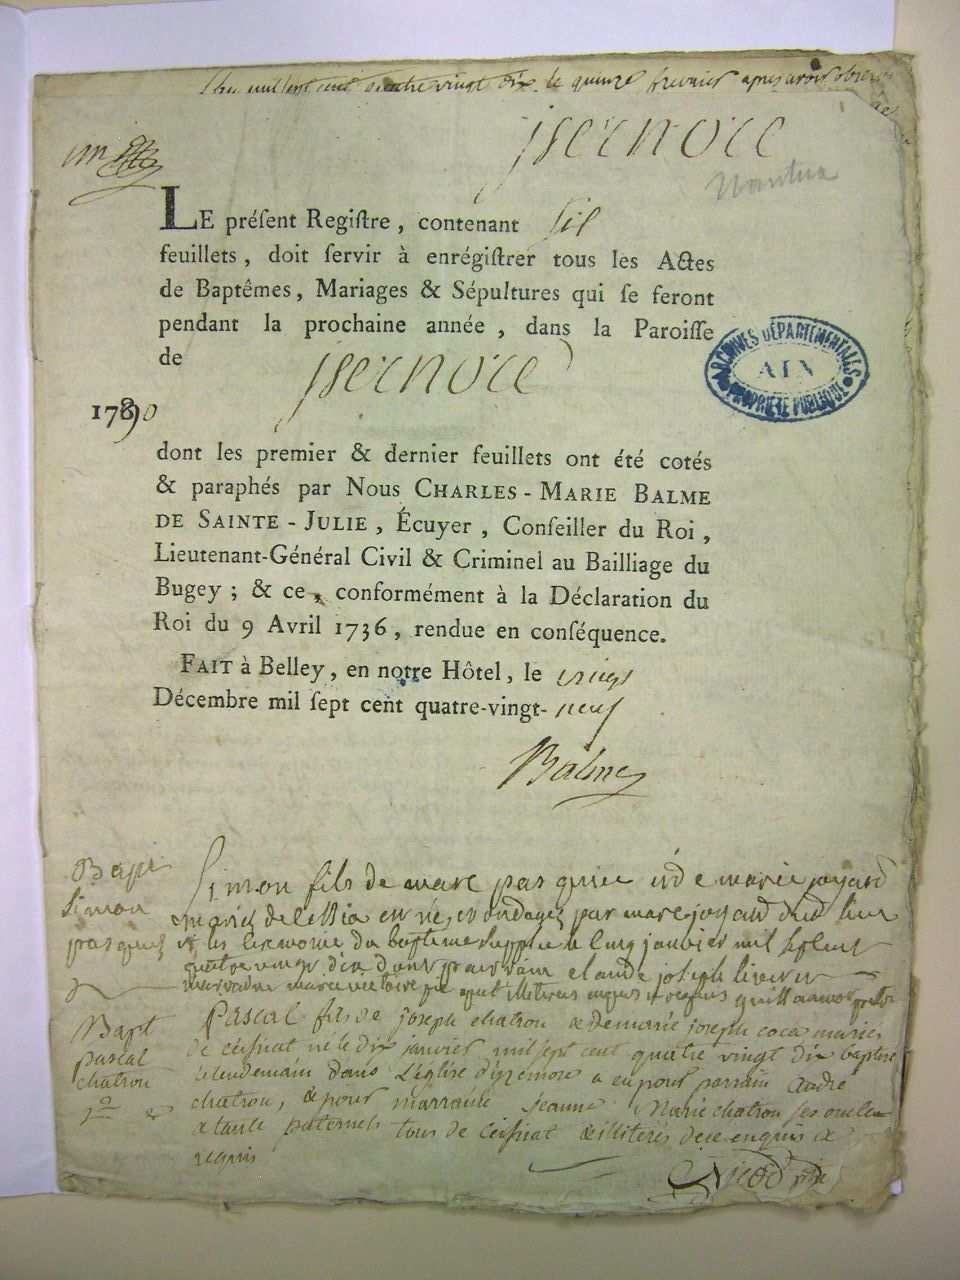 mil sept cent quatre vingt dix le quinze fevrier apres avoir
jsernore
Nantua
LE préſent Regiſtre, contenant six
feuillets, doit ſervir à enrégiſtrer tous les Actes
de Baptêmes, Mariages & Sépultures qui ſe feront
pendant la prochaine année, dans la Paroiſſe
de jsernore
1790
ARCHIVES DÉPARTEMENTALES
AIN
PROPRIÉTÉ PUBLIQUE
dont les premier & dernier feuillets ont été cotés
& paraphés par Nous CHARLES-MARIE BALME
DE SAINTE-JULIE, Écuyer, Conſeiller du Roi,
Lieutenant-Général Civil & Criminel au Bailliage du
Bugey; & ce, conformément à la Déclaration du
Roi du 9 Avril 1736, rendue en conſéquence.
FAIT à Belley, en notre Hôtel, le vingt
Décembre mil ſept cent quatre-vingt-neuf
Balme
Bapt
Simon
pasquier
Simon fils de marc pasquier et de marie joyard
mariés par marc joyard
du bapteme le cinq janvier mil sept cent
quatre vingt dix parrain claude joseph
marraine marie victoire illiteres enquis et requis
Bapt
pascal
chatron
Pascal fils de joseph chatron & de marie joseph coca mariés
de ceissiat né le dix janvier mil sept cent quatre vingt dix baptisé
le lendemain dans l'église d'yzernore a eu pour parrain andré
chatron, & pour marraine jeanne Marie chatron ses oncle
& tante paternels tous de ceissiat & illiterés de ce enquis &
requis
Nicod